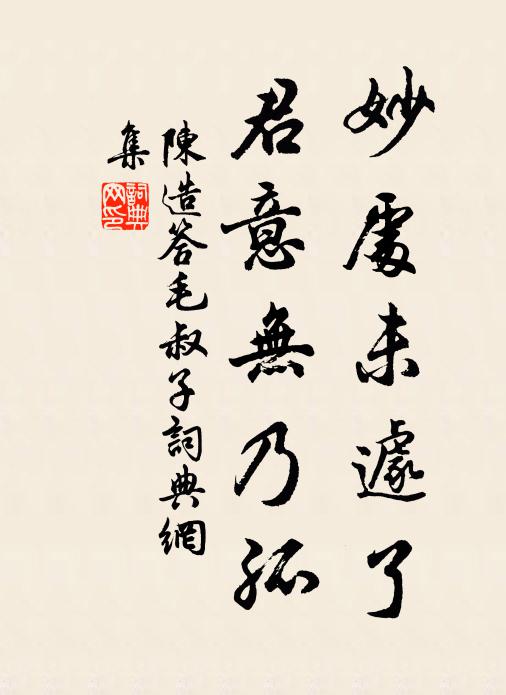 妙處未遽了
君意無乃孤
陳造答毛叔子詞典網
集
詞典
网印